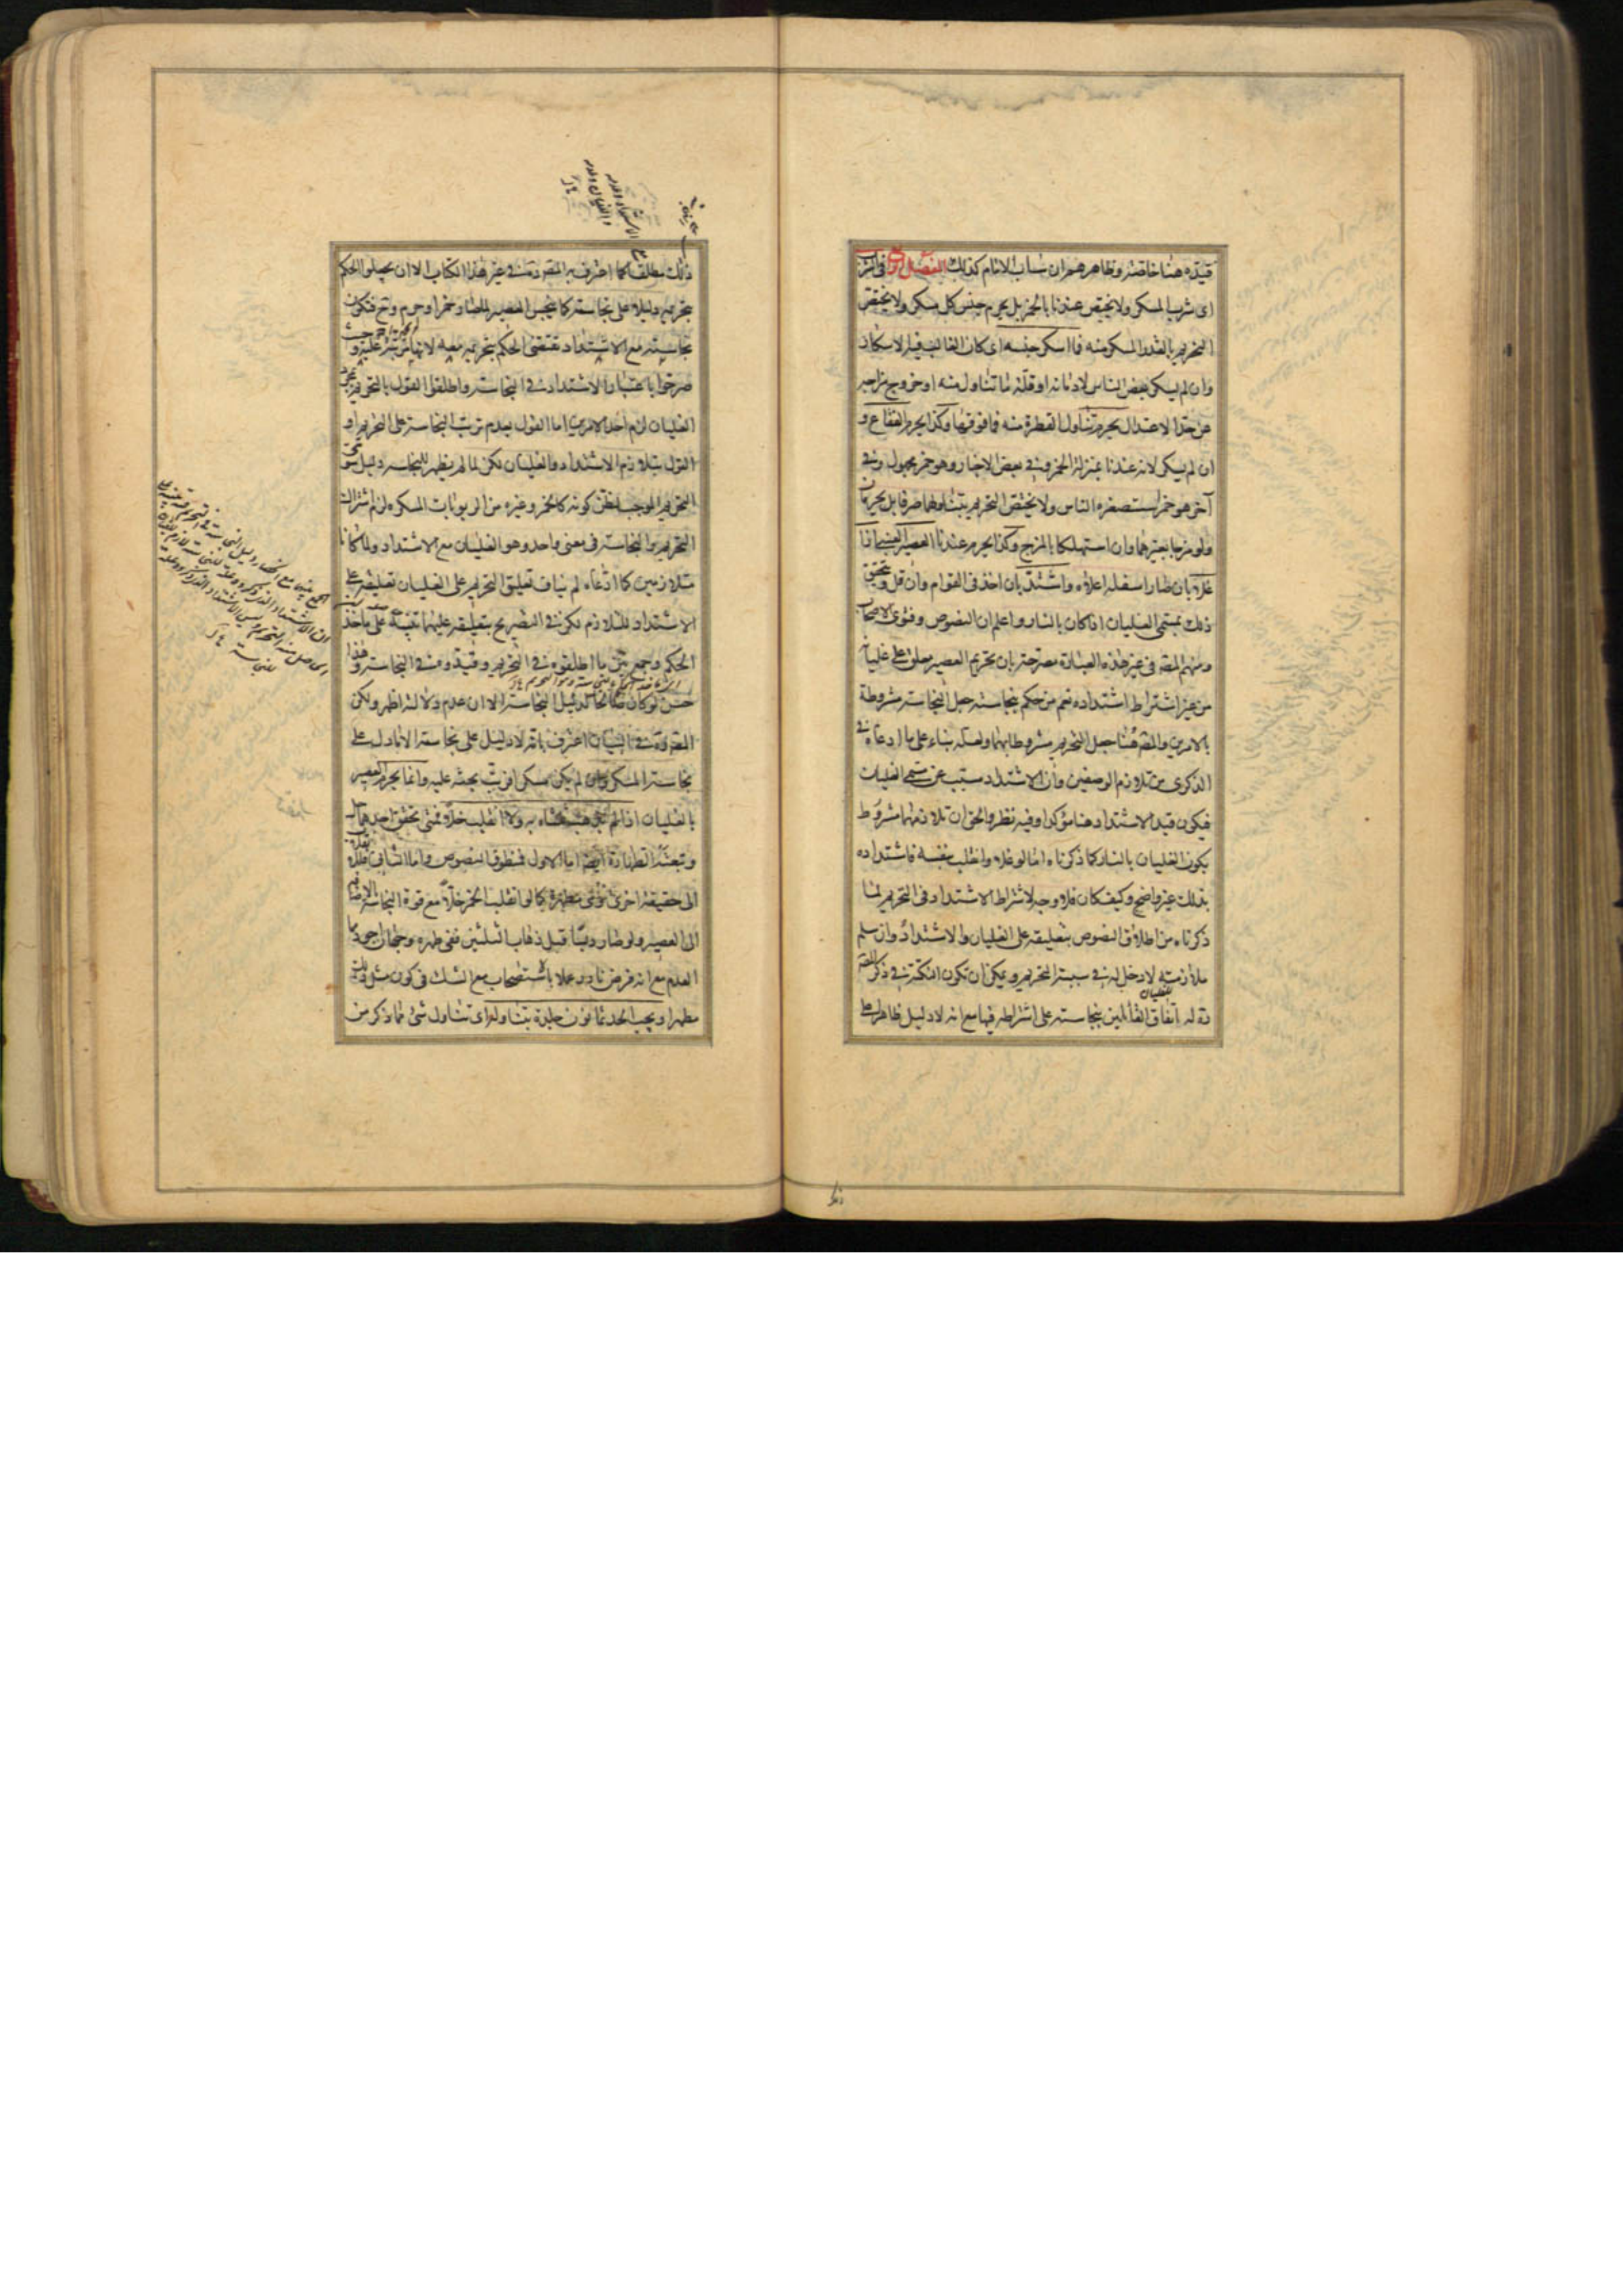 قيده هنا خاصة وظاهرهم ان ساب الامام كذلك الفصل الرابع فى الشرب
اى شرب المسكر ولا يختص عندنا بالخمر بل يحرم جنس كل مسكر ولا يختص
التحريم بالقدر المسكر منه فما اسكر جنسه اى كان الغالب فيه الاسكار
وان لم يسكر بعض الناس لادمانه او قلة ما تناول منه او خروج مزاجه
عن حد الاعتدال يحرم تناول القطرة منه فما فوقها وكذا يحرم الفقاع و
ان لم يسكر لانه عندنا بمنزلة الخمر وفى بعض الاخبار وهو خمر مجهول وفى
آخر هو خمر استصغره الناس ولا يختص التحريم بتناولهما صرفا بل يحرمان
ولو مزجا بغيرهما وان استهلكا بالمزج وكذا يحرم عندنا العصير العنبى اذا
غلا بان صار اسفله اعلاه واشتد بان اخذ فى القوام وان قل وتحقق
ذلك بمسمى الغليان اذا كان بالنار واعلم ان النصوص وفتوى الاصحاب
ومنهم المص فى غير هذه العبارة مصرحة بان تحريم العصير معلق على غليانه
من غير اشتراط اشتداده نعم من حكم بنجاسته جعل النجاسة مشروطة
بالامرين والمص هنا جعل التحريم مشروطا بهما ولعله بناء على ما ادعاه فى
الذكرى من تلازم الوصفين وان الاشتداد مسبب عن مسمى الغليان
فيكون قيد الاشتداد هنا مؤكدا وفيه نظر والحق ان تلازمهما مشروط
بكون الغليان بالنار كما ذكرناه اما لو غلا وانقلب بنفسه فاشتداده
بذلك غير واضح وكيف كان فلا وجه لاشتراط الاشتداد فى التحريم لما
ذكرناه من اطلاق النصوص بتعليقه على الغليان والاشتداد وان سلم
ملازمته لا دخل له فى سببية التحريم ويمكن ان تكون النكتة فى ذكر المص
ره له اتفاق القائلين بنجاسته على اشتراطه فيها مع انه لا دليل ظاهرا على
ذلك مطلقا كما اعترف به المص ره فى غير هذا الكتاب الا ان يجعلوا الحكم
بتحريمه دليلا على نجاسته كما ينجس العصير لما صار خمرا وحرم وح فتكون
نجاسته مع الاشتداد تقتضى الحكم بتحريمه معه لانها مترتبة عليه وحيث
صرحوا باعتبار الاشتداد فى النجاسة واطلقوا القول بالتحريم بمجرد
الغليان لزم احد الامرين اما القول بعدم ترتب النجاسة على التحريم او
القول بتلازم الاشتداد والغليان لكن لما لم يظهر للنجاسة دليل سوى
التحريم الموجب لظن كونه كالخمر وغيره من الربوبات المسكرة لزم اشتراك
التحريم والنجاسة فى معنى واحد وهو الغليان مع الاشتداد ولما كانا
متلازمين كما ادعاه لم يناف تعليق التحريم على الغليان تعليقه على
الاشتداد للتلازم لكن فى التصريح بتعليقه عليهما تنبيه على ماخذ
الحكم وجمع بين ما اطلقوه فى التحريم وقيدوه فى النجاسة وهذا
حسن لو كان صالحا لدليل النجاسة الا ان عدم دلالته اظهر ولكن
المص ره فى البيان اعترف بانه لا دليل على نجاسته الا ما دل على
نجاسة المسكر وان لم يكن مسكرا فرتب بحثه عليه وانما يحرم العصير
بالغليان اذا لم يذهب ثلثاه به ولا انقلب خلا فمتى تحقق احدهما حل
وتبعته الطهارة ايضا اما الاول فمنطوق النصوص واما الثانى فللانقلاب
الى حقيقة اخرى وهى مطهرة كما لو انقلب الخمر خلا مع قوة النجاسة بالاضافة
الى العصير ولو صار دبسا قبل ذهاب الثلثين ففى طهره وجهان اجودهما
العدم مع انه فرض نادر عملا بالاستصحاب مع الشك فى كون مثل ذلك
مطهرا ويجب الحد ثمانون جلدة بتناوله اى تناول شئ مما ذكر من